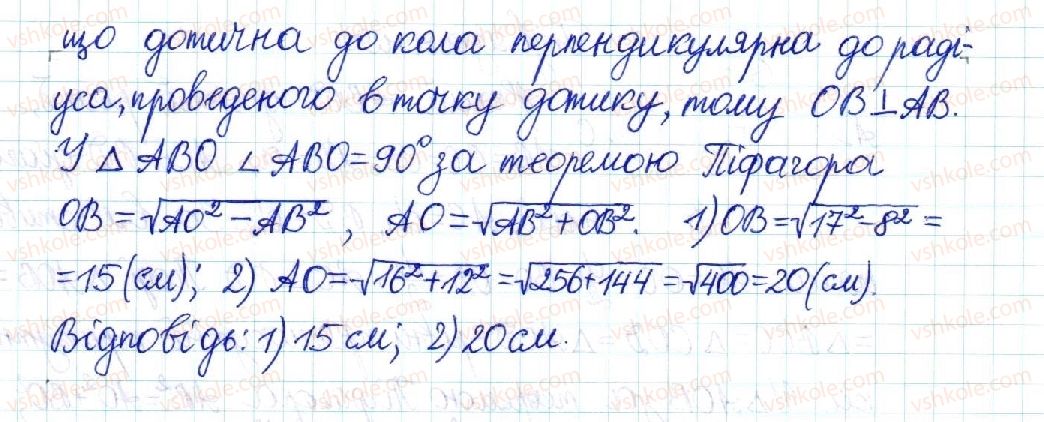 що дотична до кола перпендикулярна до раді-
уса, проведеного в точку дотику, тому OB⊥AB.
У △ ABO ∠ ABO=90° за теоремою Піфагора
OB=√AO²−AB², AO=√AB²+OB². 1) OB=√17²−8²=
=15(см); 2) AO=√16²+12²=√256+144=√400=20(см).
Відповідь: 1) 15 см; 2) 20 см.